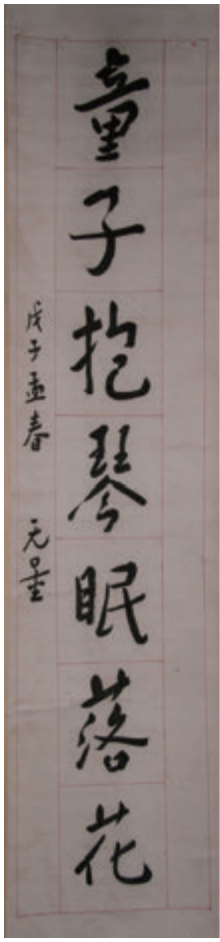 童子抱琴眠落花
戊子孟春 无量